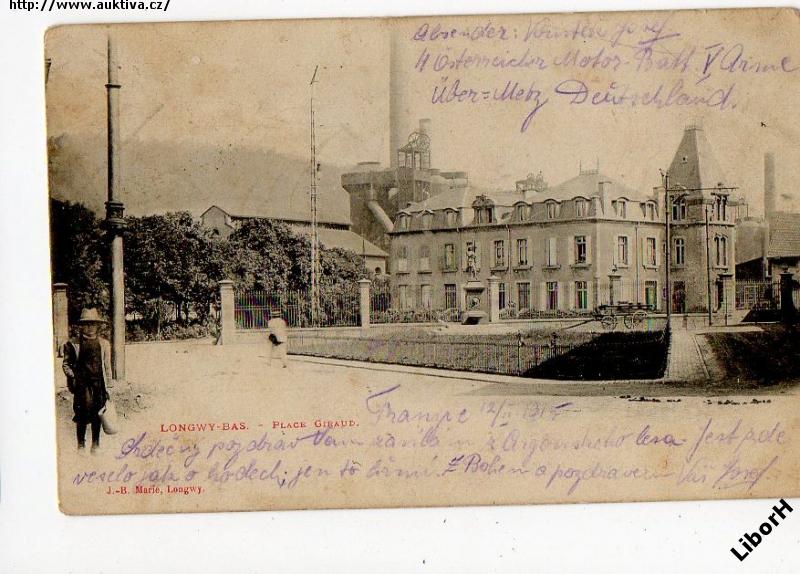 http://www.auktiva.cz/
Absender: Josef
4 Österreicher Motor-Batt. V Armé
Über=Metz Deutschland.
LONGWY-BAS. - PLACE GIRAUD.
12/II 1915
Srdečný pozdrav Vám z Argonského lesa. Jest zde
veselo jako o hodech, jen to hřmí. Z Bohem a pozdravem Váš Josef.
J.-B. Marie, Longwy.
LiborH